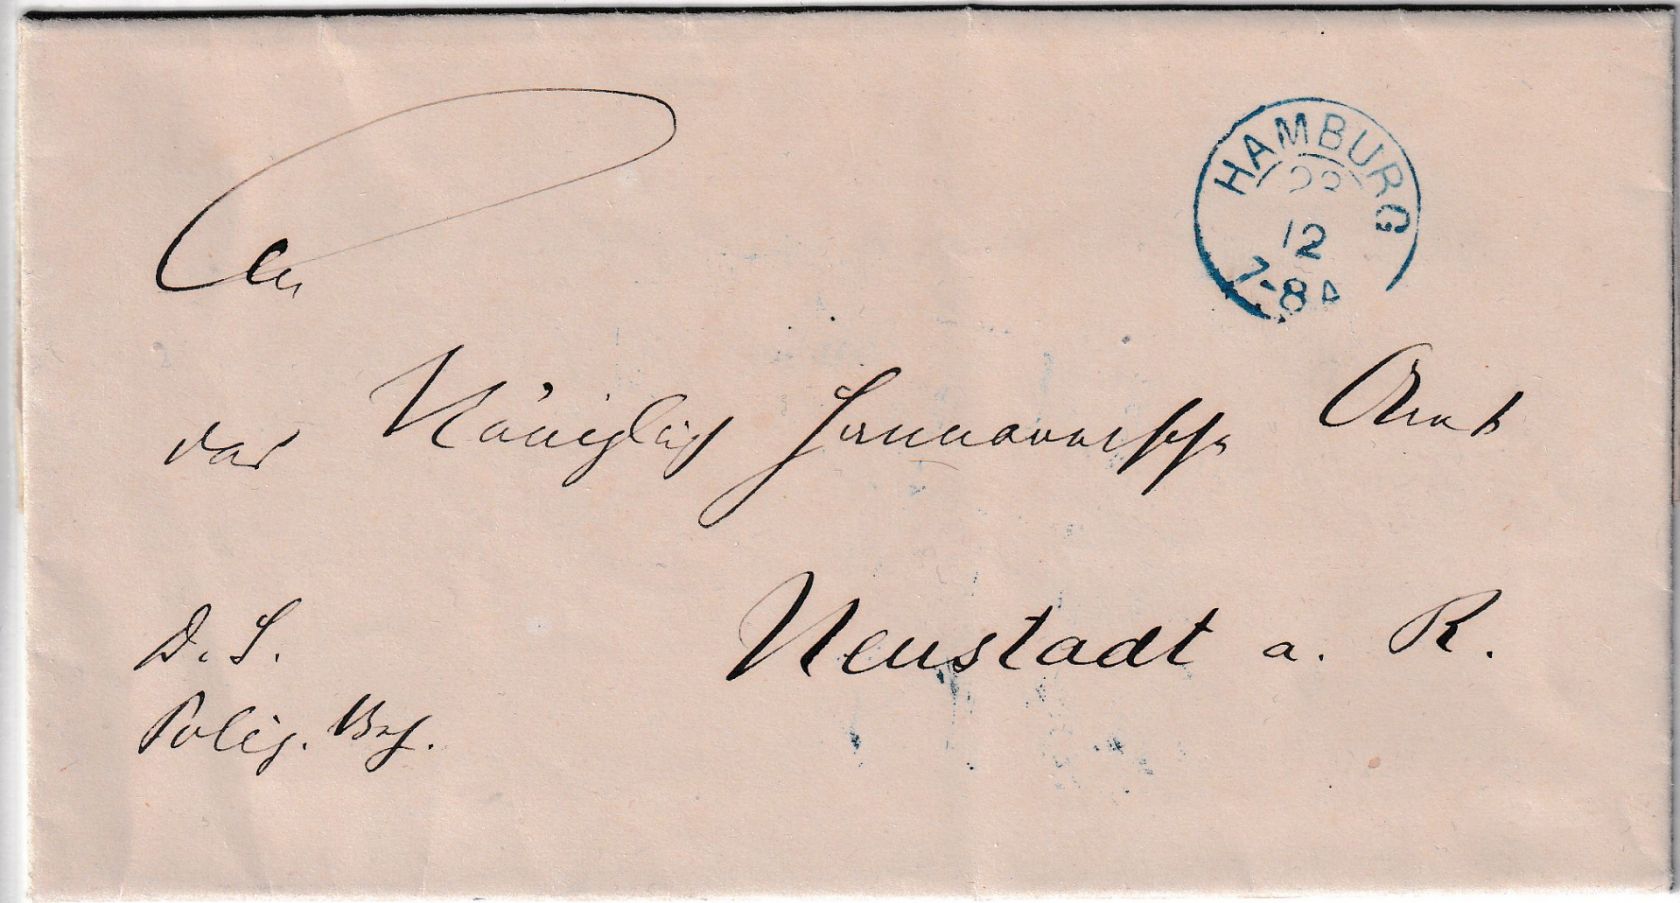 HAMBURG
12
7-8 A
An
das Königlich Hannoversche Amt
Neustadt a. R.
D. S.
Poliz.